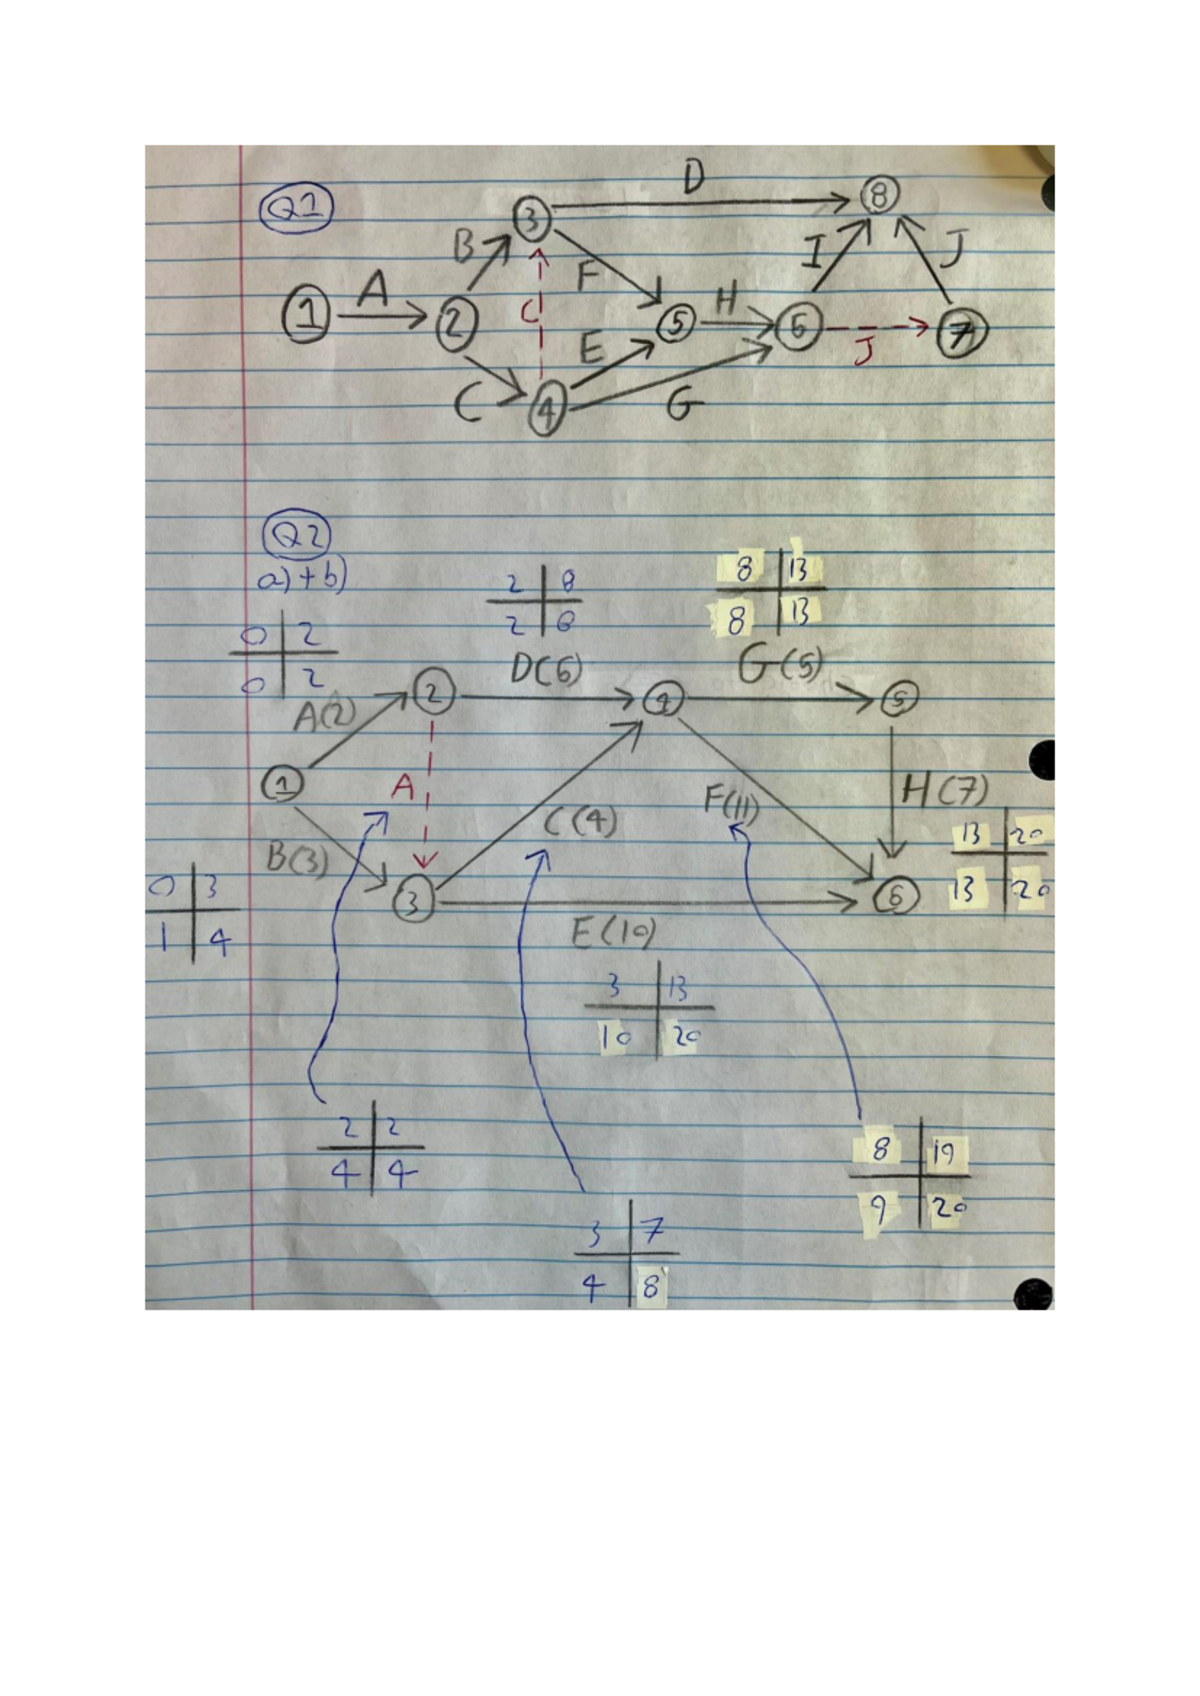 Q1
D
3
8
B
I
J
F
A
C
H
1
2
5
6
7
E
J
C
4
G
Q2
a)+b)
2 8
2 8
8 13
8 13
0 2
0 2
D(6)
G(5)
A(2)
2
4
5
1
A
H(7)
F(11)
C(4)
13 20
13 20
B(3)
0 3
1 4
3
6
E(10)
3 13
10 20
2 2
4 4
8 19
9 20
3 7
4 8